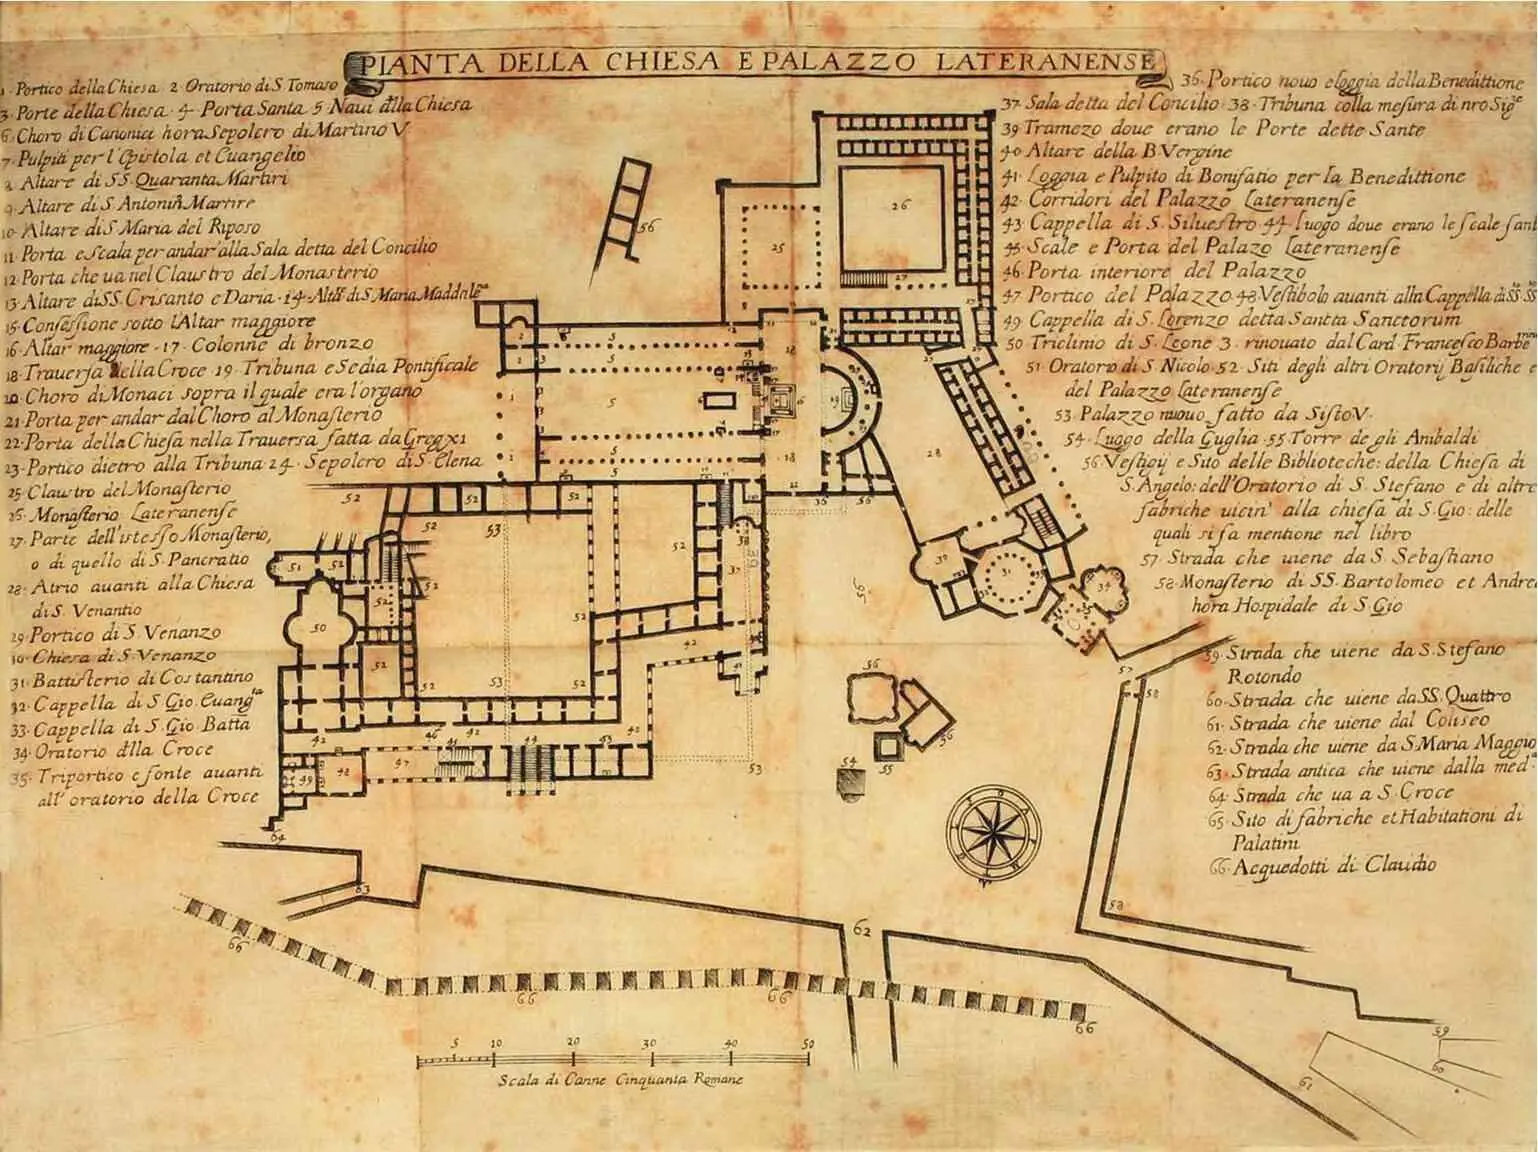 PIANTA DELLA CHIESA E PALAZZO LATERANENSE
1. Portico della Chiesa 2. Oratorio di S. Tomaso
3. Porte della Chiesa. 4. Porta Santa 5 Naui dlla Chiesa
6. Choro di Canonici hora Sepolcro di Martino V
7. Pulpiti per l'Epistola et Euangelio
8. Altare di SS. Quaranta Martiri
9. Altare di S. Antonin Martire
10. Altare di S. Maria del Riposo
11. Porta e scala per andar' alla Sala detta del Concilio
12. Porta che ua nel Claustro del Monasterio
13. Altare di SS. Crisanto e Daria. 14. Altar di S. Maria Maddalena
15. Confessione sotto l'Altar maggiore
16. Altar maggiore - 17. Colonne di bronzo
18. Trauersa della Croce 19. Tribuna e Sedia Pontificale
20. Choro di Monaci sopra il quale era l'organo
21. Porta per andar dal Choro al Monasterio
22. Porta della Chiesa nella Trauersa fatta da Greg XI
23. Portico dietro alla Tribuna 24. Sepolcro di S. Elena
25. Claustro del Monasterio
26. Monasterio Lateranense
27. Parte dell'istesso Monasterio,
o di quello di S. Pancratio
28. Atrio auanti alla Chiesa
di S. Venantio
29. Portico di S. Venanzo
30. Chiesa di S. Venanzo
31. Battisterio di Costantino
32. Cappella di S. Gio. Euangta
33. Cappella di S. Gio. Batta
34. Oratorio dlla Croce
35. Triportico e fonte auanti
all' oratorio della Croce
36. Portico nouo e loggia della Benedittione
37. Sala detta del Concilio. 38. Tribuna colla mesura di nro Sigre
39 Tramezo doue erano le Porte dette Sante
40. Altare della B Vergine
41. Loggia e Pulpito di Bonifatio per la Benedittione
42. Corridori del Palazzo Lateranense
43. Cappella di S. Siluestro 44. luogo doue erano le scale sant
45. Scale e Porta del Palazo Lateranense
46. Porta interiore del Palazzo
47. Portico del Palazzo. 48. Vestibolo auanti alla Cappella di SS. SS.
49. Cappella di S. Lorenzo detta Sancta Sanctorum
50. Triclinio di S. Leone 3. rinouato dal Card Francesco Barberino
51. Oratorio di S. Nicolo. 52. Siti degli altri Oratorij Basiliche e
del Palazzo Lateranense
53. Palazzo nuouo fatto da Sisto V.
54. Luogo della Guglia. 55. Torre degli Anibaldi
56. Vestigij e Sito delle Biblioteche: della Chiesa di
S. Angelo: dell'Oratorio di S. Stefano e di altre
fabriche uicin' alla chiesa di S. Gio: delle
quali si fa mentione nel libro
57. Strada che uiene da S. Sebastiano
58. Monasterio di SS. Bartolomeo et Andrea
hora Hospidale di S. Gio
59. Strada che uiene da S. Stefano
Rotondo
60. Strada che uiene da SS. Quattro
61. Strada che uiene dal Coliseo
62. Strada che uiene da S. Maria Maggio
63. Strada antica che uiene dalla meda
64. Strada che ua a S. Croce
65. Sito di fabriche et Habitationi di
Palatini
66. Acquedotti di Claudio
5 10 20 30 40 50
Scala di Canne Cinquanta Romane